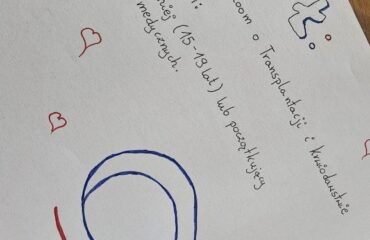 oom o Transplantacji i krwiodawstwie
niej (15-19 lat) lub początkujący
medycznych.